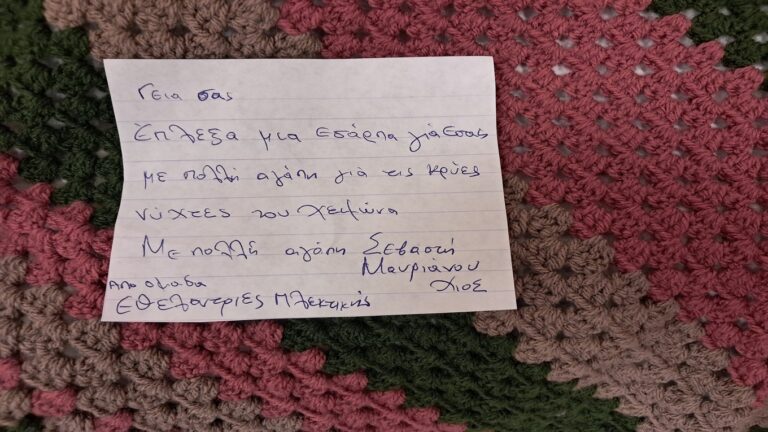 Γεια σας
Έπλεξα μια εσάρπα γιά εσας
με πολλή αγάπη γιά τις κρύες
νύχτες του χειμώνα
Με πολλή αγάπη Σεβαστή
Μαυριάνου
Χίος
Απο ομαδα
Εθελοντριες Πλεκτικής